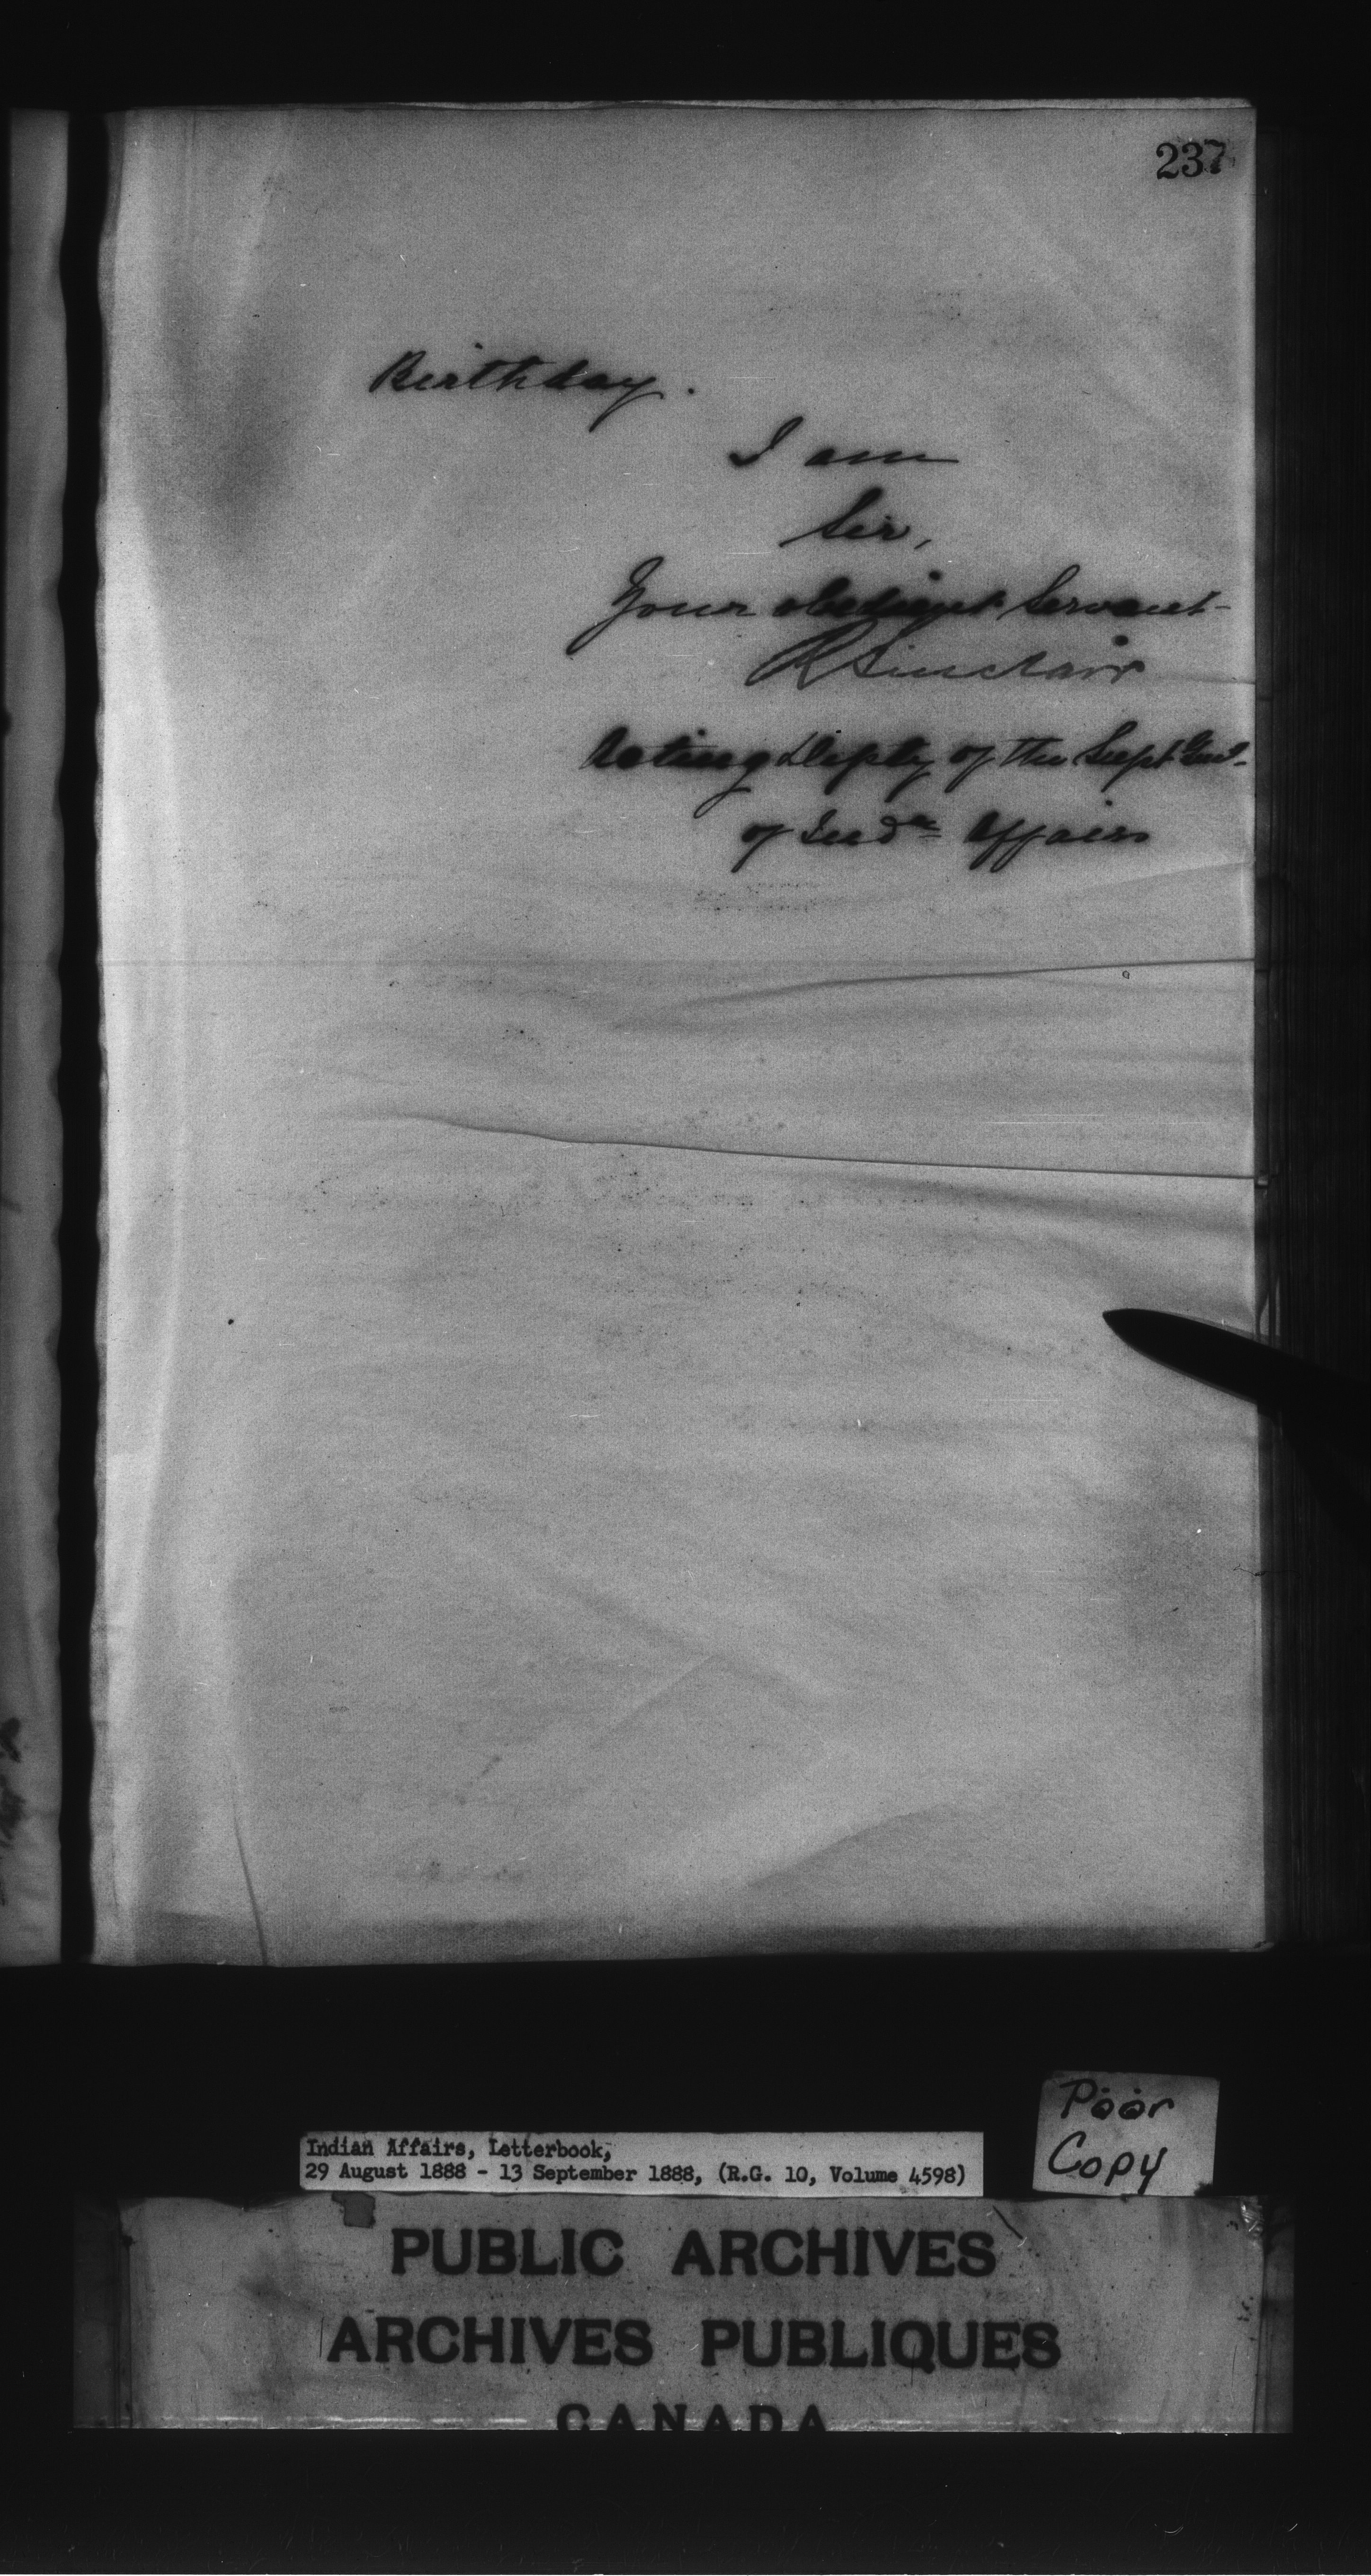 237
Birthday.
I am
Sir,
Your obedient Servant
R Sinclair
Acting Depty of the Supt Genl.
of Indn Affairs
Poor
Copy
Indian Affairs, Letterbook,
29 August 1888 - 13 September 1888, (R.G. 10, Volume 4598)
PUBLIC ARCHIVES
ARCHIVES PUBLIQUES
CANADA